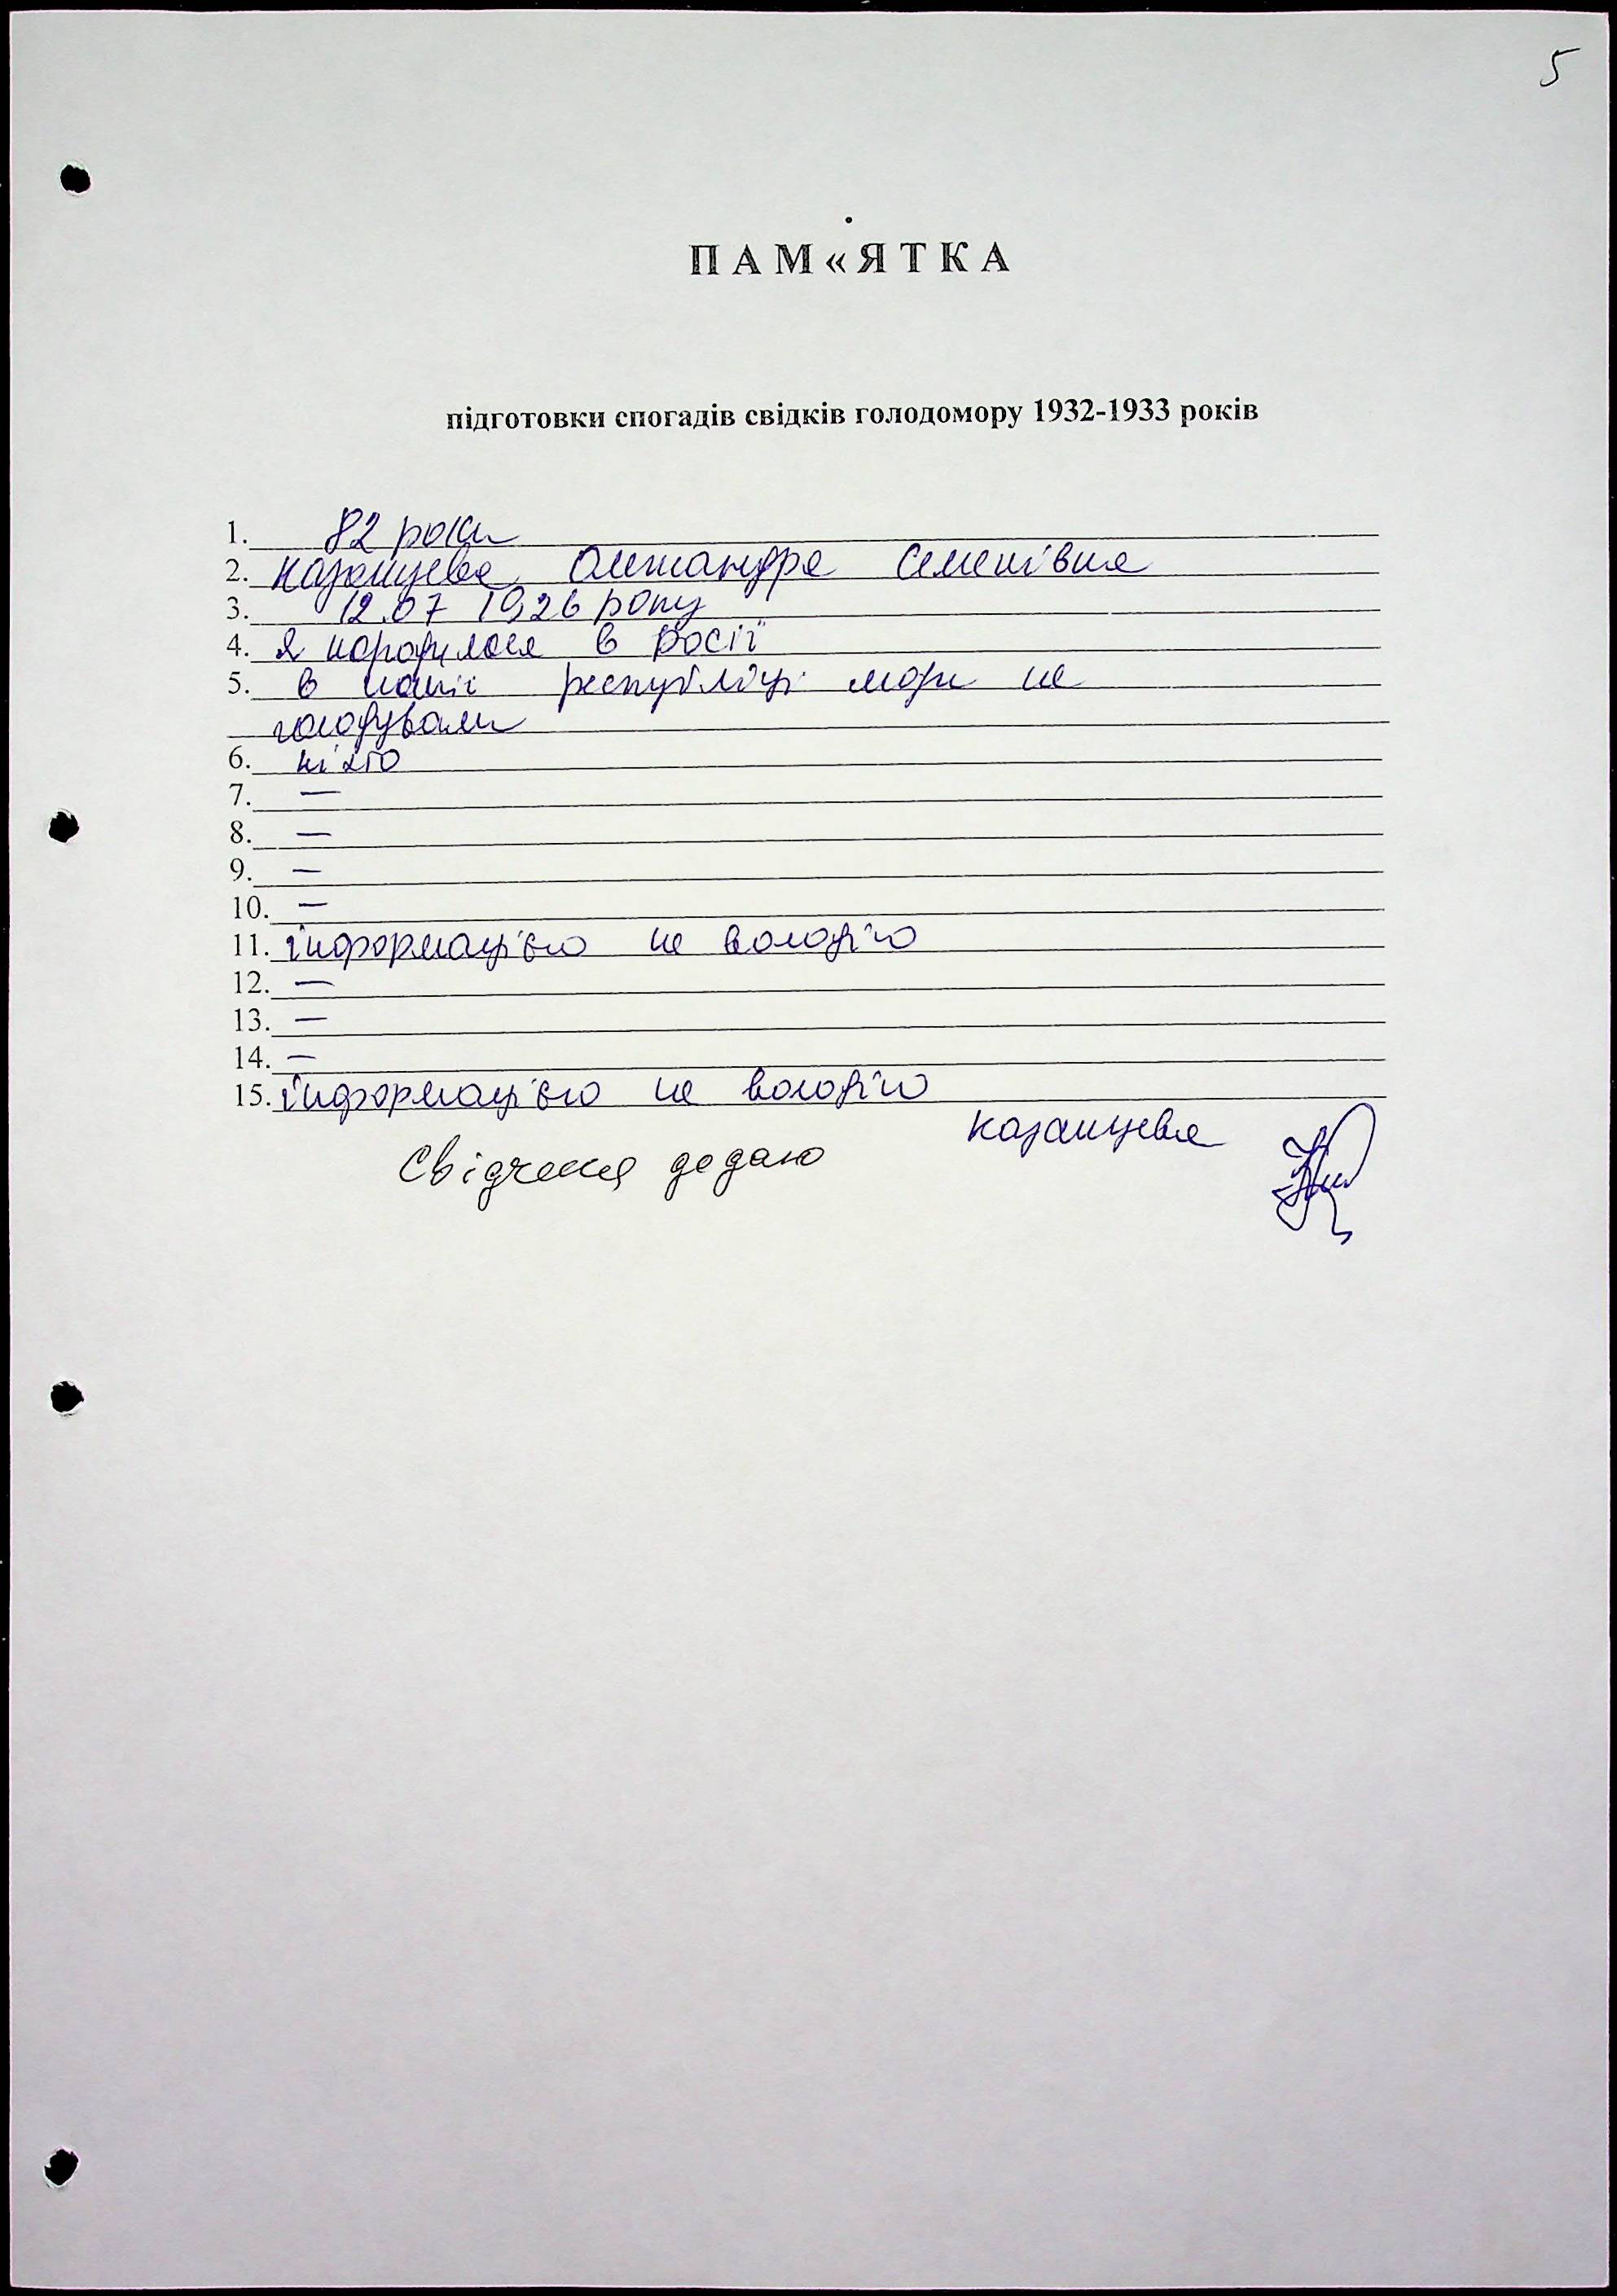 5
ПАМ«ЯТКА
підготовки спогадів свідків голодомору 1932-1933 років
1. 82 роки
2. Казанцева Олександра Семенівна
3. 12.07 1926 року
4. Я народилася в Росії
5. в нашій республіці люди не
голодували
6. ніхто
7. —
8. —
9. —
10. —
11. інформацією не володію
12. —
13. —
14. —
15. інформацією не володію
Казанцева
Свідчення додаю